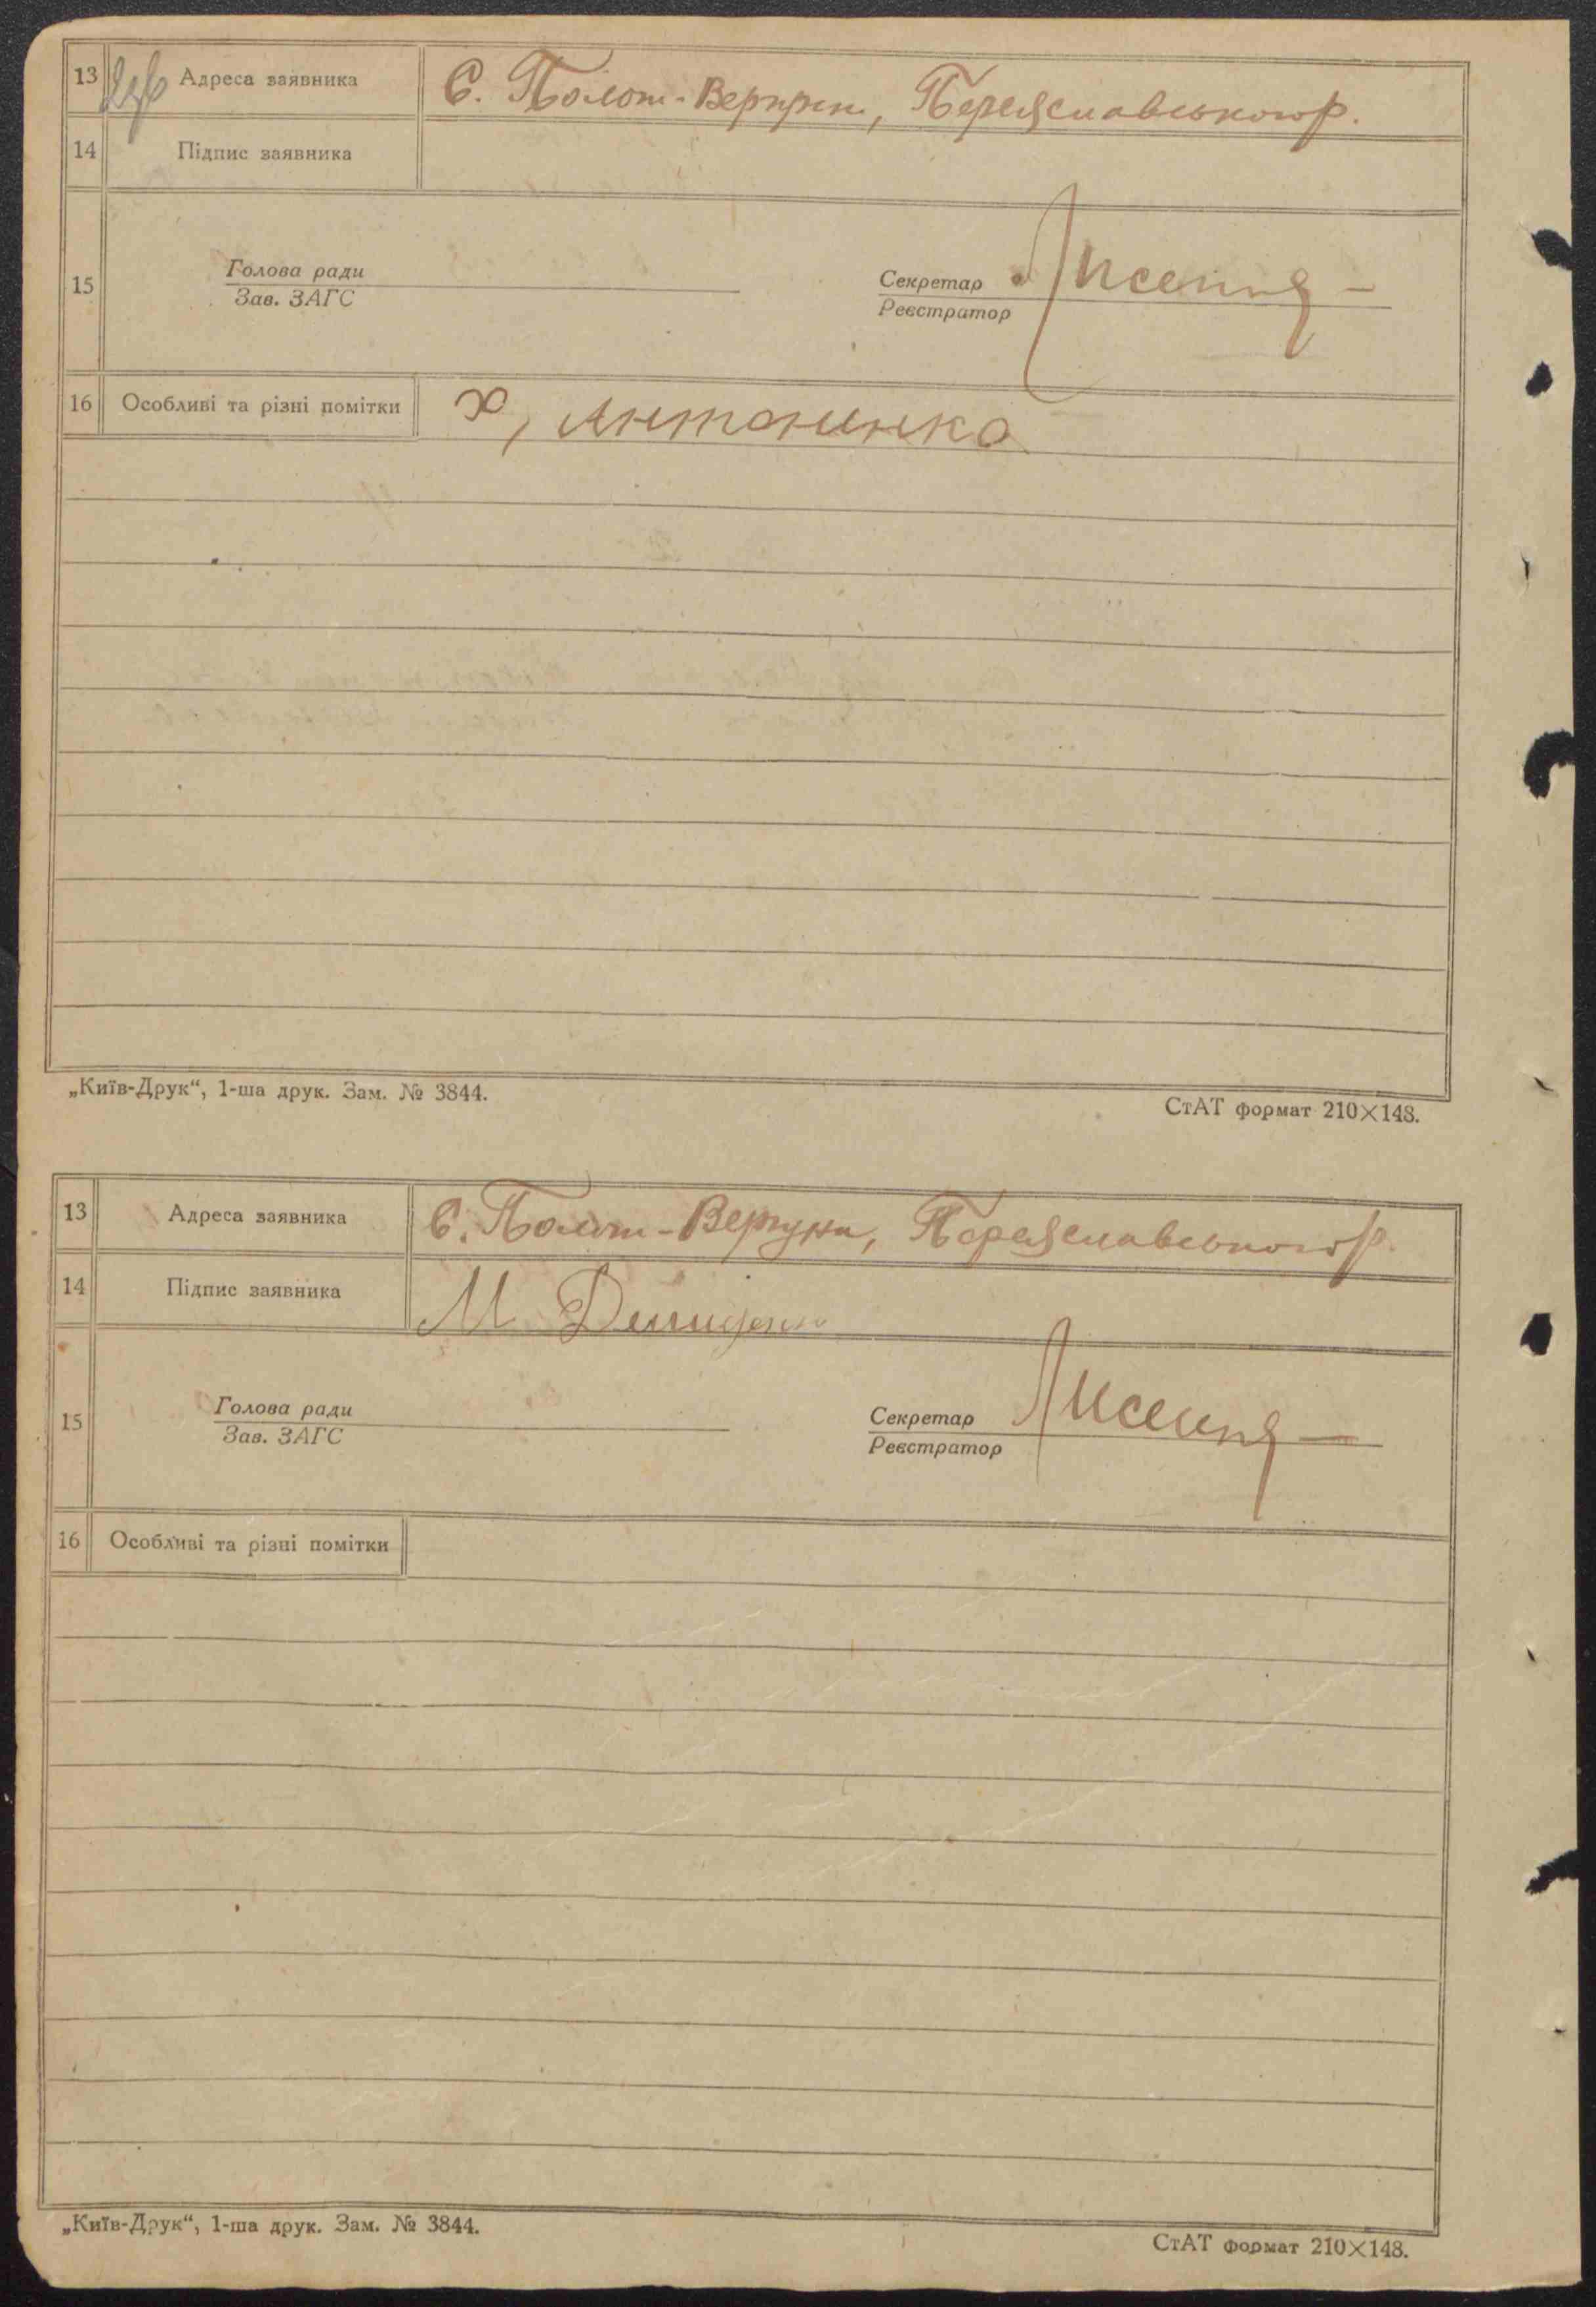 13 Адреса заявника С. Полот-Вергуни, Переяславського р.
14 Підпис заявника
15 Голова ради
Зав. ЗАГС
Секретар
Реєстратор
16 Особливі та різні помітки х, Антоненко
„Київ-Друк“, 1-ша друк. Зам. № 3844.
СтАТ формат 210×148.
13 Адреса заявника С. Полот-Вергуни, Переяславського р.
14 Підпис заявника М
15 Голова ради
Зав. ЗАГС
Секретар
Реєстратор
16 Особливі та різні помітки
„Київ-Друк“, 1-ша друк. Зам. № 3844.
СтАТ формат 210×148.